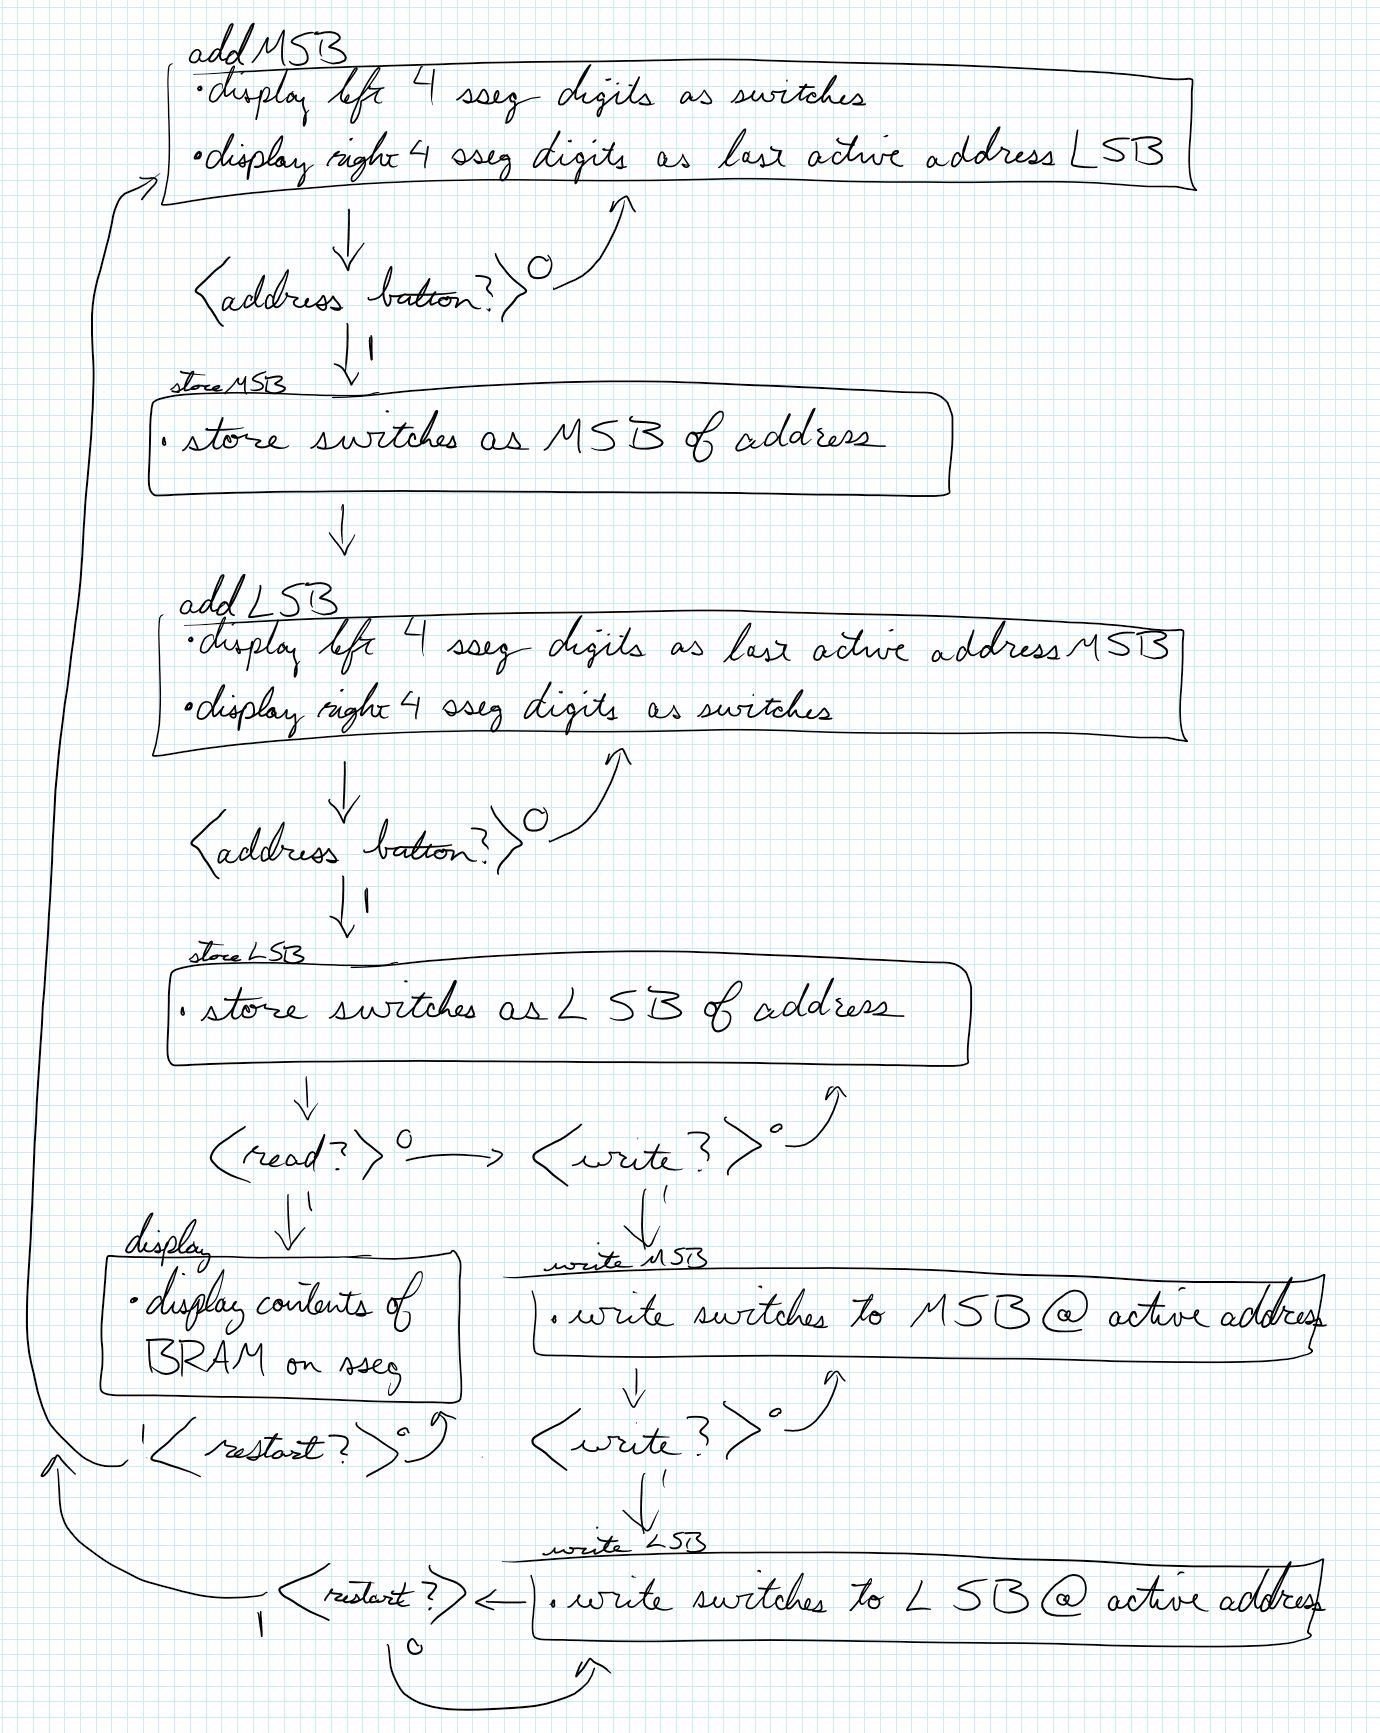 add MSB
• display left 4 sseg digits as switches
• display right 4 sseg digits as last active address LSB
<address button?> 0
1
store MSB
• store switches as MSB of address
add LSB
• display left 4 sseg digits as last active address MSB
• display right 4 sseg digits as switches
<address button?> 0
1
store LSB
• store switches as LSB of address
<read?> 0 <write?> 0
1 1
display
• display contents of
BRAM on sseg
1 <restart?> 0
write MSB
• write switches to MSB @ active address
<write?> 0
1
write LSB
• write switches to LSB @ active address
<restart?>
1 0